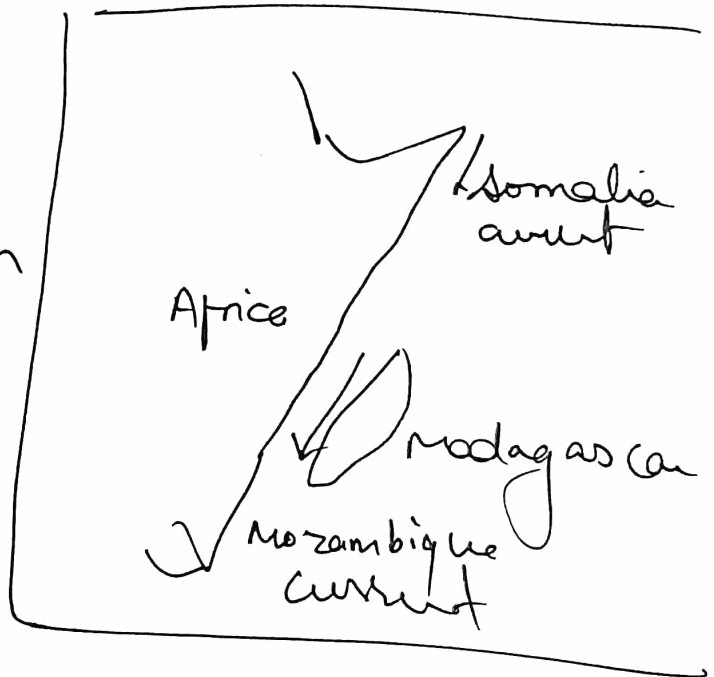 Somalia
current
Africa
Madagascar
Mozambique
Current